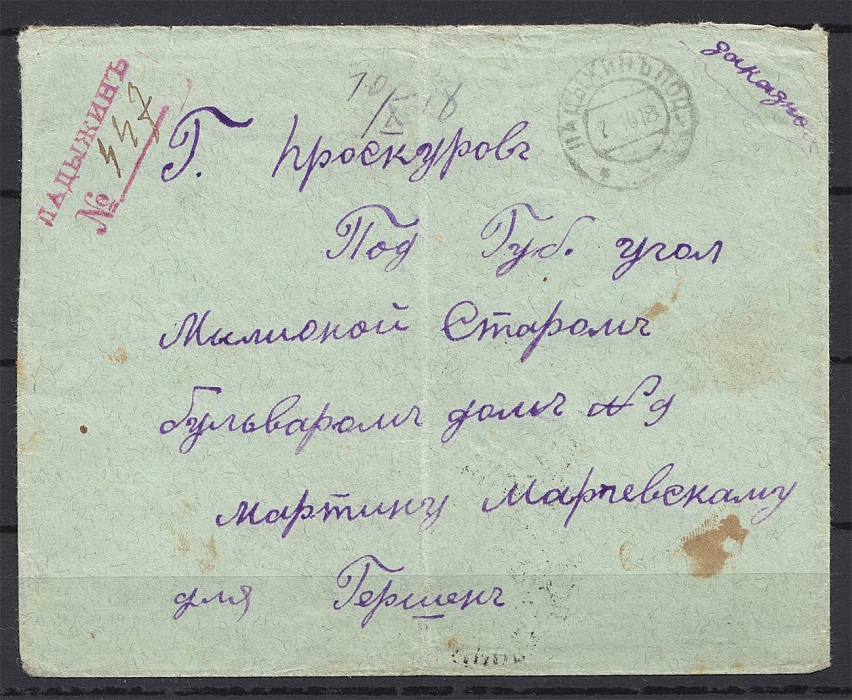 заказное
ЛАДЫЖИНЪ
№ 447
10/X 18
ЛАДЫЖИНЪ ПОД.
Г. Проскуровъ
Под Губ. угол
Милионой Старомъ
бульваромъ домъ №9
Мартину Марчевскаму
для Гершенъ